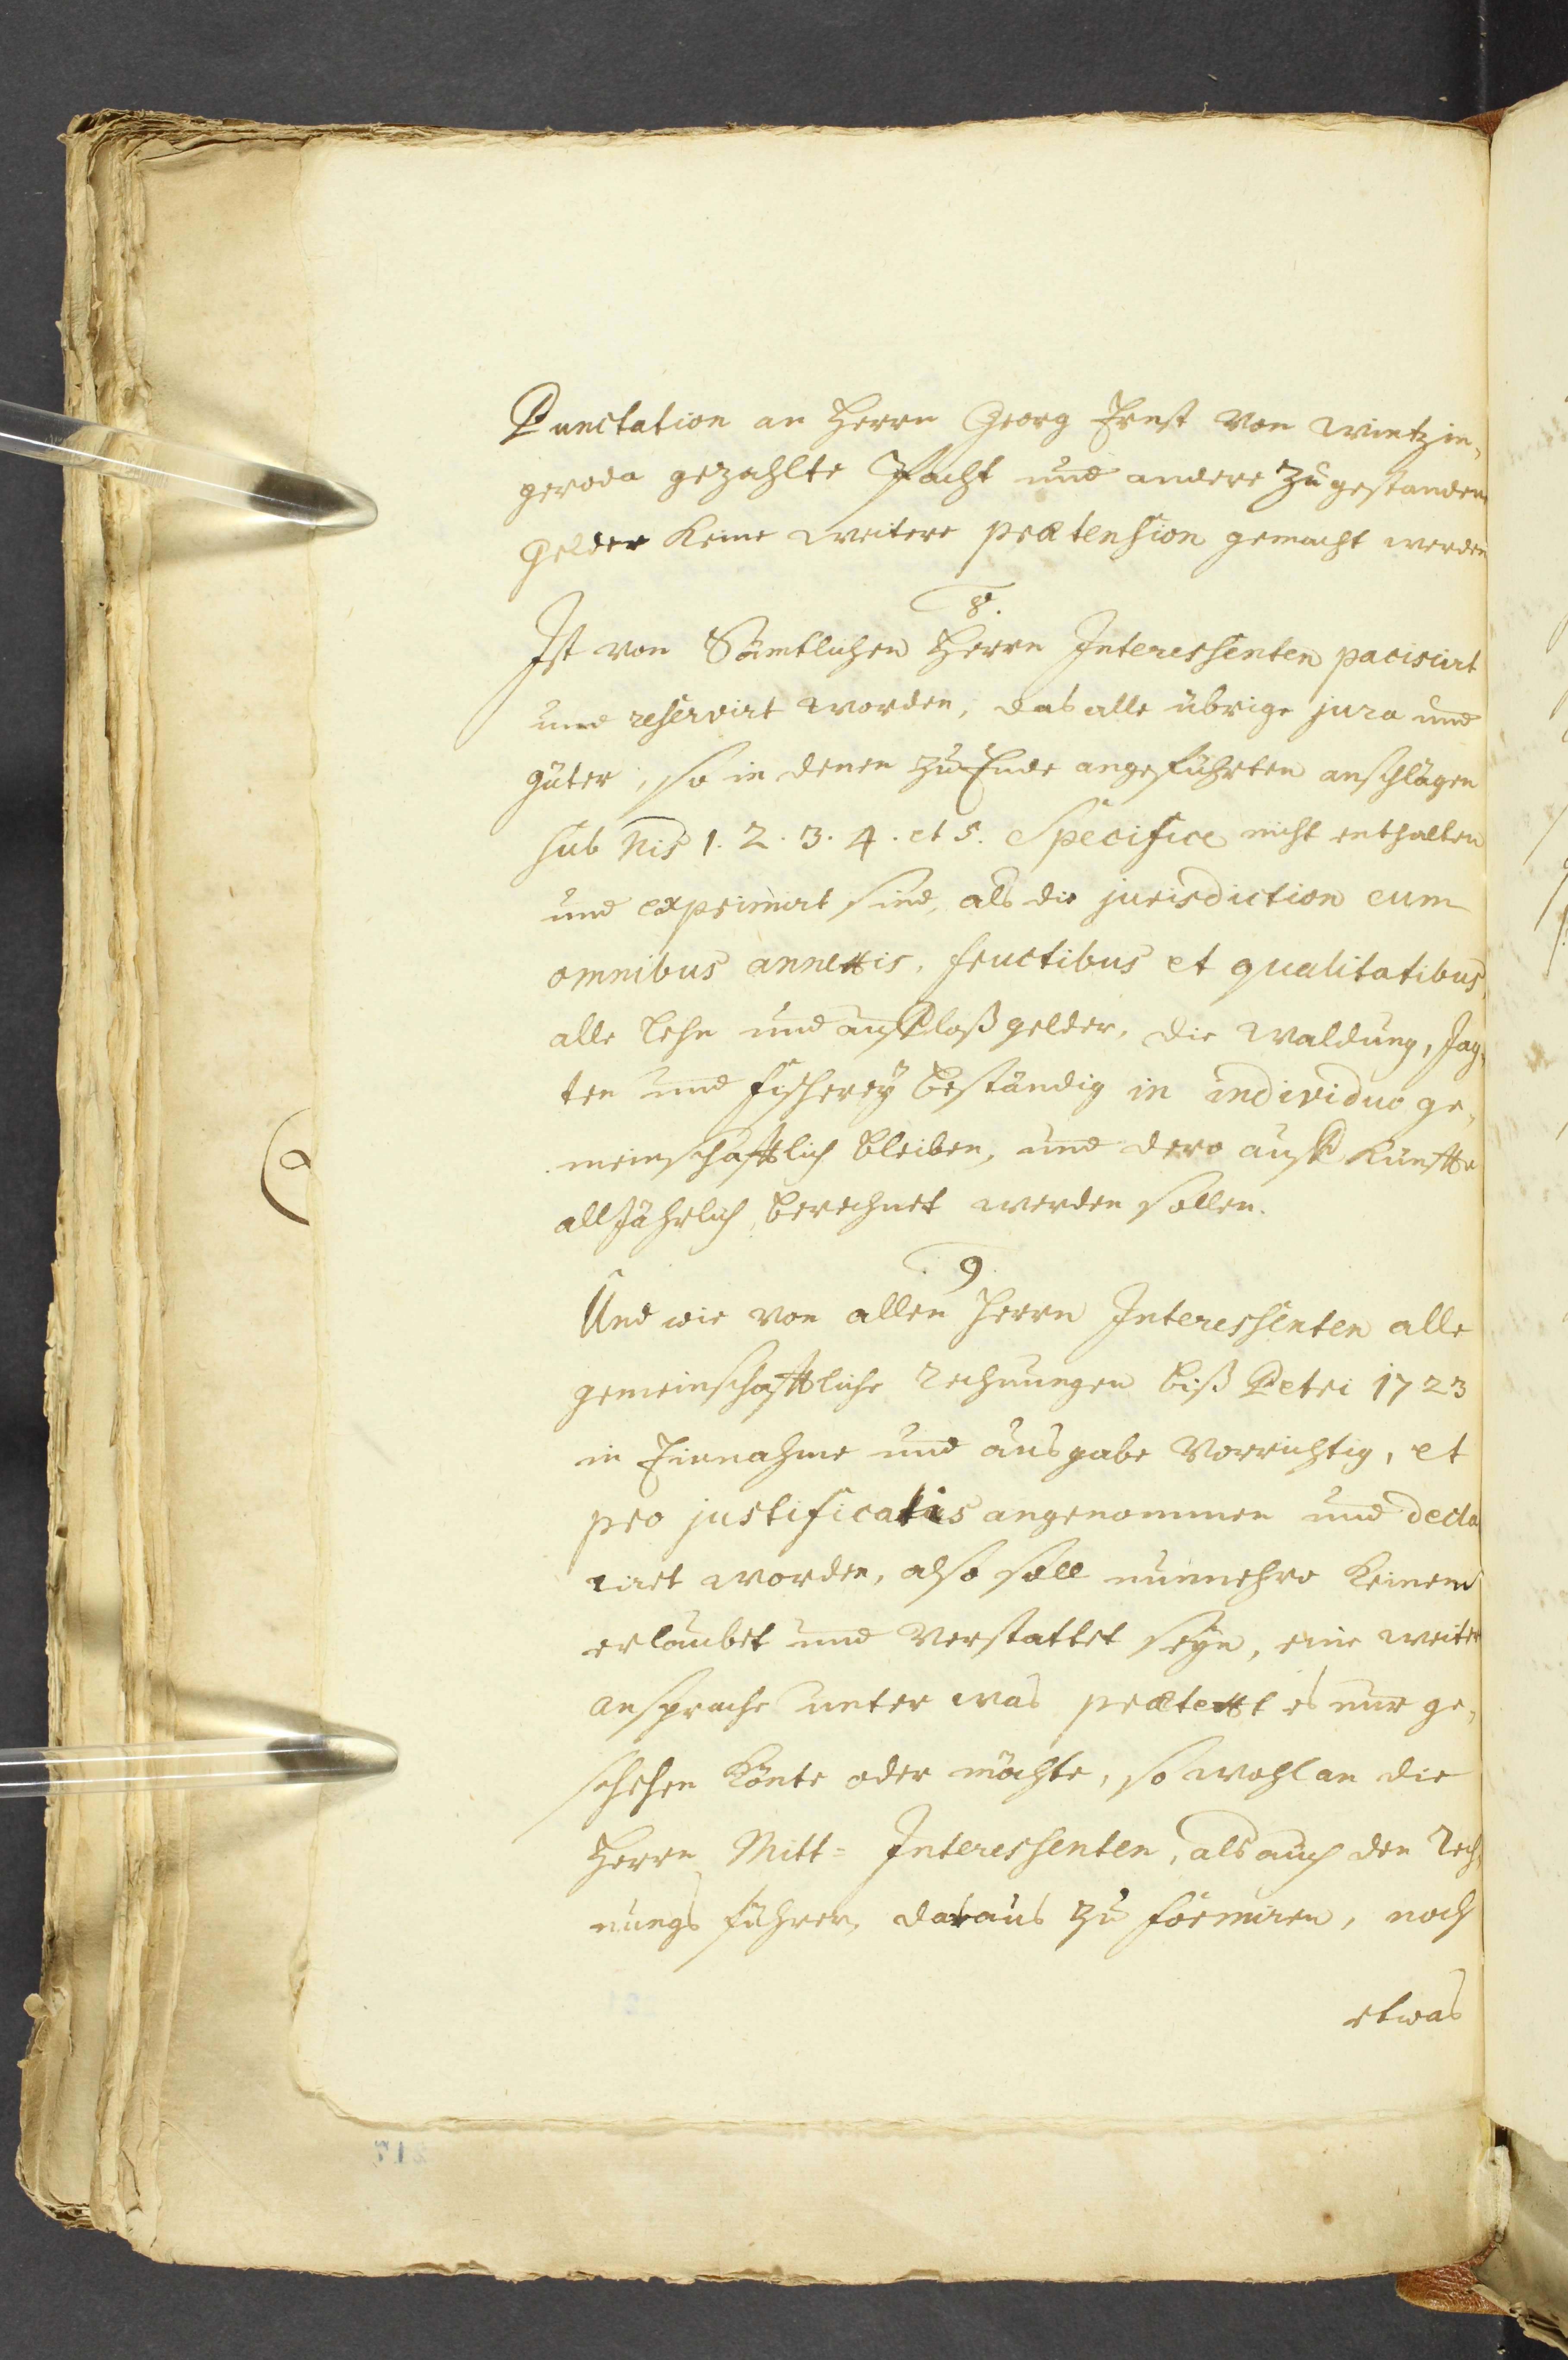 Punctation an Herrn Georg Ernst von Wintzin,
geroda gezahlte Pacht und andere zugestanden
Gelder keine weitere prætension gemacht werden
8.
Ist von Sämtlichen Herrn Interessenten pacisirt
und reservirt worden, das alle übrige jura und
güter, so in denen zu Ende angeführten anschlägen
sub Nis 1. 2. 3. 4. et 5. Specifice nicht enthalten
und exprimirt sind, als die jurisdiction cum
omnibus annexis, fructibus et qualitatibus,
alle Lehn und gelder, die Waldung, Jag,
ten und fischerey beständig in individuo ge,
meinschafftlich bleiben, und dero auffkünffte
alljährlich berechnet werden sollen.
9
Und wie von allen Herrn Interessenten alle
gemeinschafftliche rechnungen biß Petri 1723
in Einnahme und ausgabe vorrichtig, et
pro justificatis angenommen und decla
riret worden, also soll nunmehro keinem
erlaubet und verstattet seyn, eine weiter
ansprache unter was prætext es nur ge,
schehen könte oder möchte, so wohl an die
Herrn Mitt= Interessenten, als auch den Rech,
nungs führer, daraus zu formiren, noch
etwas
217